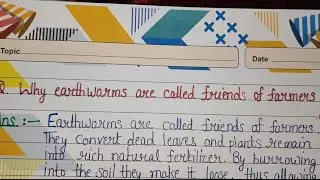 Topic
Date
Q Why earthworms are called friends of farmers
Ans :— Earthworms are called friends of farmers
They convert dead leaves and plants remain
into rich natural fertilizer. By burrowing
into the soil they make it loose, thus allowing